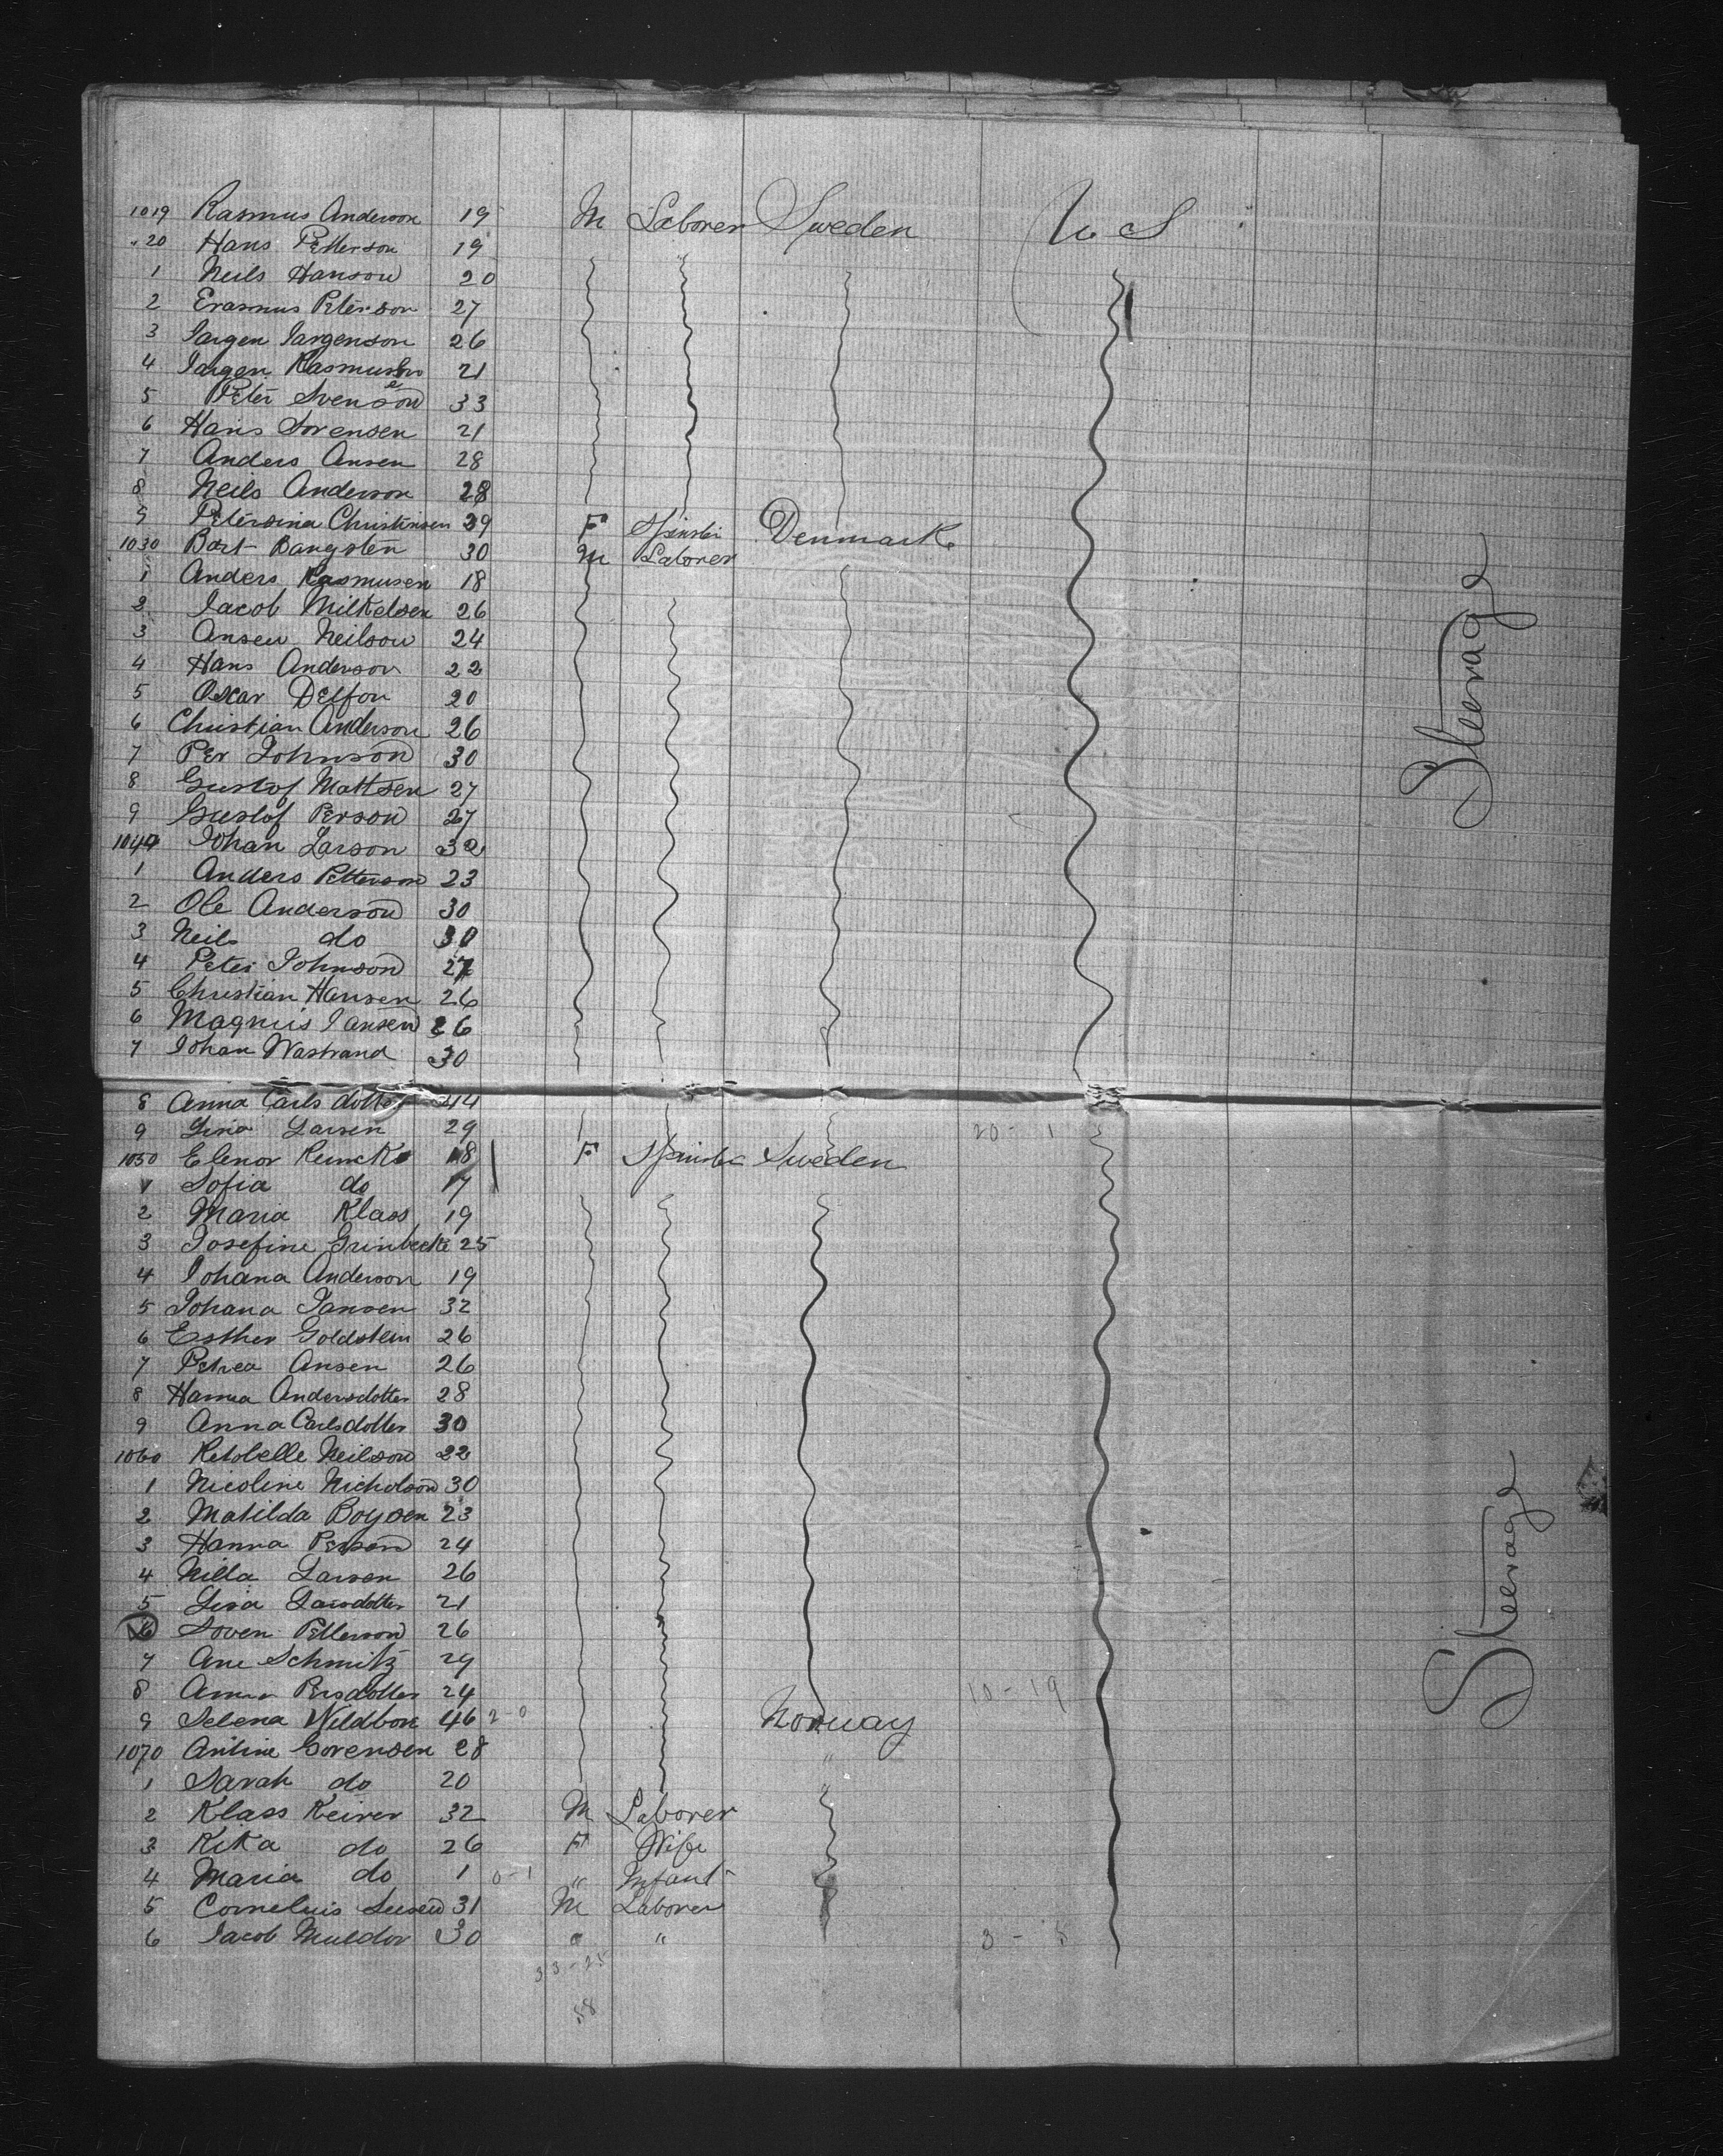 1019 Rasmus Anderson 19 M Laborer Sweden U S
20 Hans Petterson 19
1 Neils Hanson 20
2 Erasmus Peterson 27
3 Jargen Jargenson 26
4 Jargen Rasmussen 21
5 Peter Svenson 33
6 Hans Sorensen 21
7 Anders Ansen 28
8 Neils Anderson 28
9 Petersina Christensen 29 F Spinster Denmark
1030 Bart Bangsten 30 M Laborer
1 Anders Rasmusen 18
2 Jacob Milkelsen 26
3 Ansen Neilson 24
4 Hans Anderson 22
5 Oscar Delfon 20
6 Christian Anderson 26
7 Per Johnson 30
8 Gustof Mattsen 27
9 Gustof Person 27
1040 Johan Larson 32
1 Anders Petterson 23
2 Ole Anderson 30
3 Neils do 30
4 Peter Johnson 27
5 Christian Hansen 26
6 Magnus Jansen 26
7 Johan Wastrand 30
Steerage
8 Anna Carlsdotter 44
9 Lina Larsen 29 20 - 1
1050 Elenor 18 F Spinster Sweden
1 Sofia do 17
2 Maria Klass 19
3 Josefine Grinbecke 25
4 Johana Anderson 19
5 Johana Jansen 32
6 Esther Goldstein 26
7 Petrea Ansen 26
8 Hanna Andersdotter 28
9 Anna Carlsdotter 30
1060 Retobelle Neilson 22
1 Nicoline Nicholson 30
2 Matilda Boysen 23
3 Hanna Person 24
4 Nilla Larsen 26
5 Lisa Larsdotter 21
6 Soven Petterson 26
7 Ane Schmitz 29
8 Anna Persdotter 24 10 - 19
9 Selena Wildbore 46 2-0 Norway
1070 Antine Sorensen 28 "
1 Sarah do 20 "
2 Klass Keirer 32 M Laborer
3 Kika do 26 F Wife
4 Maria do 1 0-1 " Infant
5 Cornelius 31 M Laborer
6 Jacob Muldor 30 " " 3 -
33-25
58
Steerage